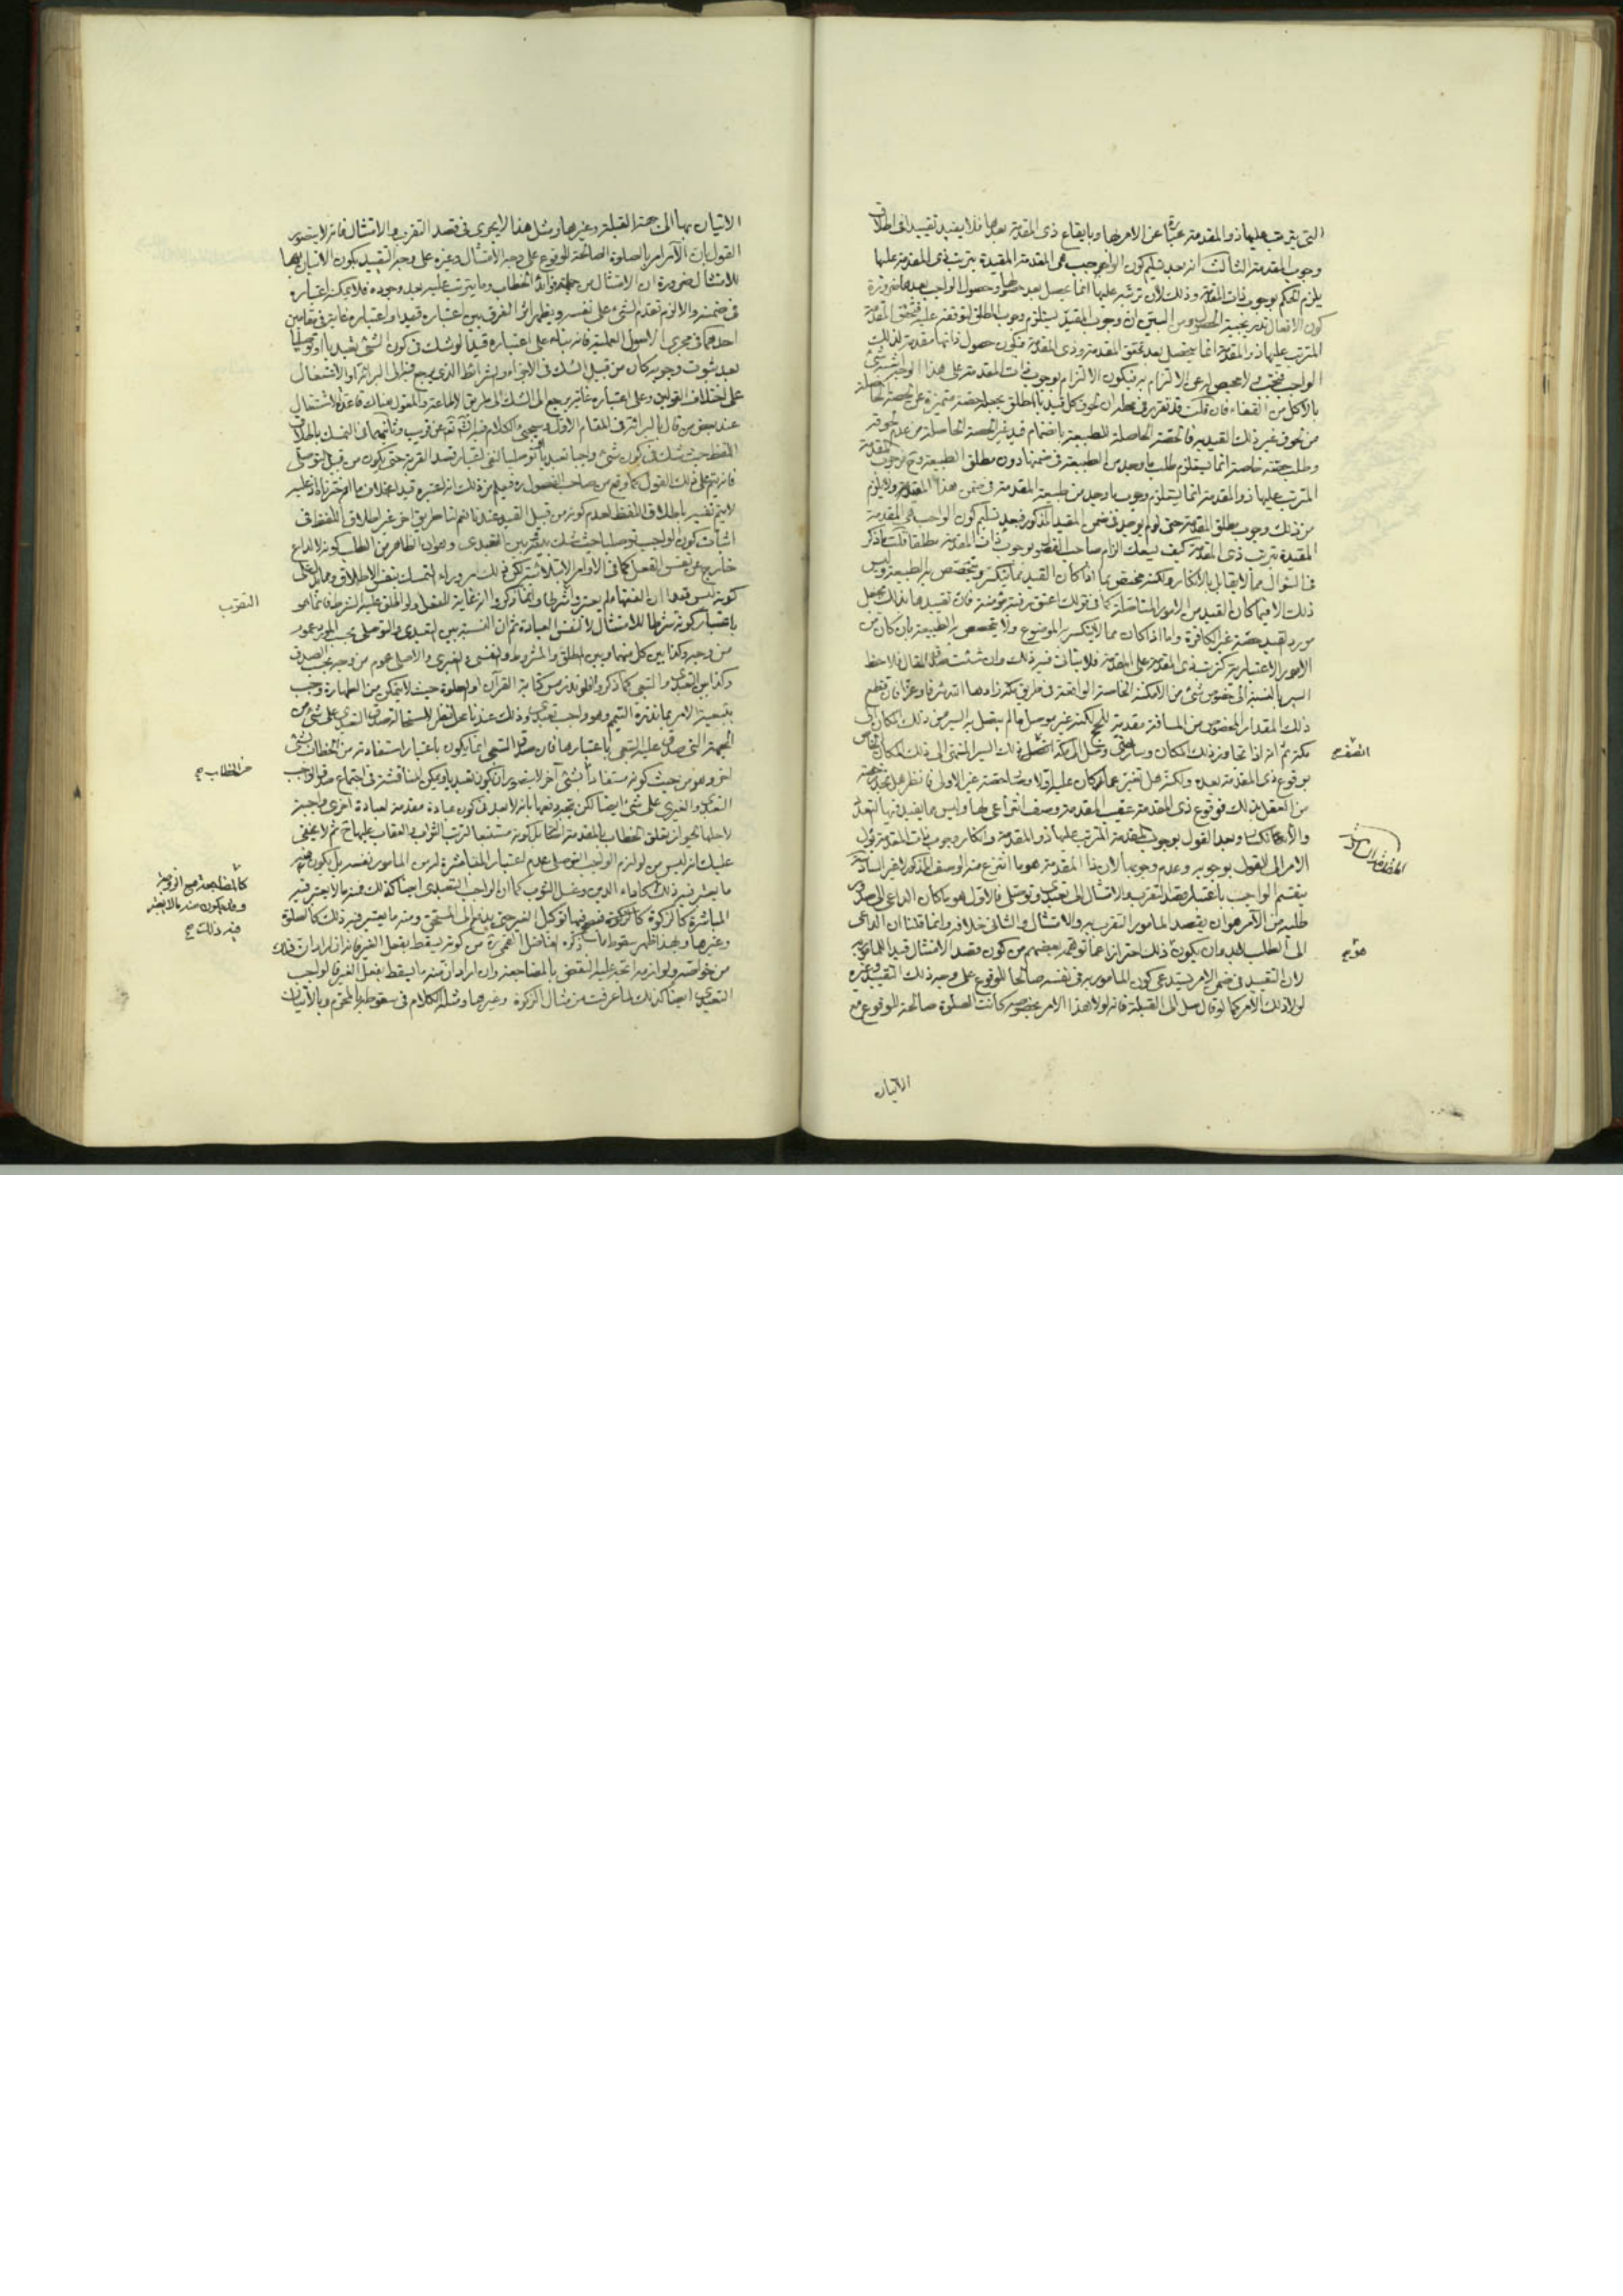 التى يترتب عليها ذو المقدمة عبارة عن الامر بها وبايقاع ذى المقدمة بعدها فلا يفيد تقييدا فى اطلاق
وجوب المقدمة الثالث انه بعد تسليم كون الواجب هى المقدمة المقيدة بترتب ذى المقدمة عليها
يلزم الحكم بوجوب ذات المقدمة وذلك لان ترتبه عليها انما يحصل بعد حصولها وحصول الواجب بعدها ضرورة
كون الافعال تدريجية الحصول ومن البين ان وجوب المقيد يستلزم وجوب المطلق لتوقفه عليه فتحقق المقدمة
المترتب عليها ذو المقدمة انما يحصل بعد تحقق المقدمة وذى المقدمة فيكون حصول ذاتها مقدمة لذلك
الواجب فتجب لا محيص له عن الالتزام به فيكون الالتزام بوجوب ذات المقدمة على هذا الوجه اشبه شئ
بالاكل من القفاء فان قلت قد تقرر فى محله ان لحوق كل قيد بالمطلق يجعله حصة متميزة عن الحصة الحاصلة
من لحوق غير ذلك القيد به فالحصة الحاصلة للطبيعة بانضمام قيد غير الحصة الحاصلة من عدم لحوقه
وطلب حصة خاصة انما يستلزم طلب ما وجد من الطبيعة فى ضمنها دون مطلق الطبيعة وح فوجوب المقدمة
المترتب عليها ذو المقدمة انما يستلزم وجوب ما وجد من طبيعة المقدمة فى ضمن هذا المقدمة ولا يلزم
من ذلك وجوب مطلق المقدمة حتى لو لم يوجد فى ضمن المقيد المذكور فبعد تسليم كون الواجب هى المقدمة
المقيدة بترتب ذى المقدمة كيف يسعك الزام صاحب الفصول بوجوب ذات المقدمة مطلقا قلت ما ذكر
فى السؤال مما لا يقابل بالانكار ولكنه مختص بما اذا كان القيد مما يتكثر ويتخصص به الطبيعة وليس
ذلك الا فيما كان القيد من الامور المتاصلة كما فى قولك اعتق رقبة مؤمنة فان تقييدها بذلك يجعل
مورد القيد حصة غير الكافرة واما اذا كان مما لا يتكثر به الموضوع ولا يتخصص به الطبيعة بان كان من
الامور الاعتبارية كترتب ذى المقدمة على المقدمة فلا يتاتى فيه ذلك وان شئت صدق المقال فلاحظ
السير بالنسبة الى خصوص شئ من الامكنة الخاصة الواقعة فى طريق مكة زادها الله شرفا وعزا فان قطع
ذلك المقدار المخصوص من المسافة مقدمة للحج لكنه غير موصل ما لم يتصل به السير من ذلك المكان الى
مكة ثم انه اذا تجاوز ذلك المكان وسار حتى وصل الى مكة اتصف ذلك السير المنتهى الى ذلك المكان الخاص
بوقوع ذى المقدمة بعده ولكنه هل تغير عما كان عليه اولا وصار حصة غير الاولى فانظر هل تجد رخصة
من العقل بذلك فوقوع ذى المقدمة عقيب المقدمة وصف انتزاعى لها وليس مما يفيد فيها التعدد
والانعكاس وبعد القول بوجوب المقدمة المترتب عليها ذو المقدمة وانكار وجوب ذات المقدمة يؤل
الامر الى القول بوجوبه وعدم وجوبها لان ذا المقدمة هو ما انتزع منه الوصف المذكور لا غير السادسة
ينقسم الواجب باعتبار قصد التقرب والامتثال الى تعبدى وتوصلى فالاول هو ما كان الداعى الى صدور
طلبه من الآمر هو ان يقصد المامور التقرب به والامتثال والثانى خلافه وانما قلنا ان الداعى
الى الطلب لابد وان يكون ذلك احترازا عما توهمه بعضهم من كون قصد الامتثال قيدا للمامور به
لان التقييد فى ضمن الامر يستدعى كون المامور به فى نفسه صالحا للوقوع على وجه ذلك التقييد وغيره
لولا ذلك الامر كما لو قال صل الى القبلة فانه لولا هذا الامر بخصوصه كانت الصلوة صالحة للوقوع مع
الاتيان
اتصف صح
هو صح
الاتيان بها الى جهة القبلة وغيرها ومثل هذا لا يجرى فى قصد التقرب والامتثال فانه لا يتصور
القول بان الآمر امر بالصلوة الصالحة للوقوع على وجه الامتثال وغيره على وجه التقييد بكون الاتيان بها
للامتثال ضرورة ان الامتثال من جملة فوائد الخطاب وما يترتب عليه بعد وجوده فلا يمكن اعتباره
فى ضمنه والا لزم تقدم الشئ على نفسه ويظهر اثر الفرق بين اعتباره قيدا واعتباره غاية فى مقامين
احدهما فى مجرى الاصول العملية فانه بناء على اعتباره قيدا لو شك فى كون الشئ تعبديا او توصليا
بعد ثبوت وجوبه كان من قبيل الشك فى الاجزاء والشرائط الذى يرجع فيه الى البرائة او الاشتغال
على اختلاف القولين وعلى اعتباره غاية يرجع الى الشك الى طريق الاطاعة والمعول هناك قاعدة الاشتغال
عند بعض من قال بالبرائة فى المقام الاول وسيجئ الكلام فيه انشاء الله تعالى عن قريب وثانيهما فى التمسك باطلاق
اللفظ حيث شك فى كون شئ واجبا تعبديا او توصليا لنفى اعتبار قصد القربة حتى يكون من قبيل التوصلى
فانه يتم على ذلك القول كما وقع من صاحب الفصول ره فيلزمه ذلك انه اعتبره قيدا بخلاف ما اخترناه اذ عليه
لا يتم نفيه باطلاق اللفظ لعدم كونه من قبيل القيد عندنا نعم لنا طريق اخر غير اطلاق اللفظ فى
اثبات كون الواجب توصليا حيث شك بينه وبين التعبدى وهو ان الظاهر من الطلب كونه لا لداع
خارج عن نفس الفعل كما فى الاوامر الابتلائية لكون ذلك امر وراء التمسك بنفس الاطلاق ومما يدل على
كونه ليس قيدا ان الفقهاء لم يعدوه شرطا وانما ذكروا انه غاية للفعل ولو اطلق عليه الشرط فانما هو
باعتبار كونه شرطا للامتثال لا لنفس العبادة ثم ان النسبة بين التعبدى والتوصلى بحسب المورد عموم
من وجه وكذا بين كل منهما وبين المطلق والمشروط والنفسى والغيرى والاصلى عموم من وجه بحسب الصدق
وكذا بين التعبدى والتبعى كما ذكروا فلو نذر مس كتابة القرآن او الصلوة حيث لا يتمكن من الطهارة وجب
بتبعية الامر بما نذره التيمم وهو واجب تعبدى وذلك عندنا محل نظر لاستحالة صدق التعبدى على شئ من
الجهة التى صدق عليه التبعى باعتبارها فان صدق التبعى انما يكون باعتبار استفادته من الخطاب بشئ
اخر وهو من حيث كونه مستفادا بشئ آخر لا يتصور ان يكون تعبديا ويمكن المناقشة فى اجتماع صدق الواجب
التعبدى والغيرى على شئ ايضا لكن يتجه دفعها بانه لا بعد فى كون عبادة مقدمة لعبادة اخرى واجبة
لاجلها لجواز تعلق الخطاب بالمقدمة الكذائى بل كونه مستتبعا لترتب الثواب والعقاب عليها ح ثم لا يخفى
عليك انه ليس من لوازم الواجب التوصلى عدم اعتبار المباشرة له من المامور بنفسه بل يكون فيه
ما يعتبر فيه ذلك كاداء الدين وغسل الثوب كما ان الواجب التعبدى ايضا كذلك فمنه ما لا يعتبر فيه
المباشرة كالزكوة فيصح فيها توكيل الغير حتى يدفع الى المستحق ومنه ما يعتبر فيه ذلك كالصلوة
وغيرها وبهذا ظهر سقوط ما ذكره الفاضل القمى ره من كونه يسقط بفعل الغير فانه ان اراد ان ذلك
من خواصه ولوازمه اتجه عليه النقض بالمضاجعة وان اراد ان منه ما يسقط بفعل الغير فالواجب
التعبدى ايضا كذلك لما عرفت من مثال الزكوة وغيرها ومثله الكلام فى سقوطه بالمحرم وبالاتيان
التقرب
من الخطاب صح
كالمضاجعة مع الزوجة
وقد يكون منه ما لا يعتبر
فيه ذلك صح